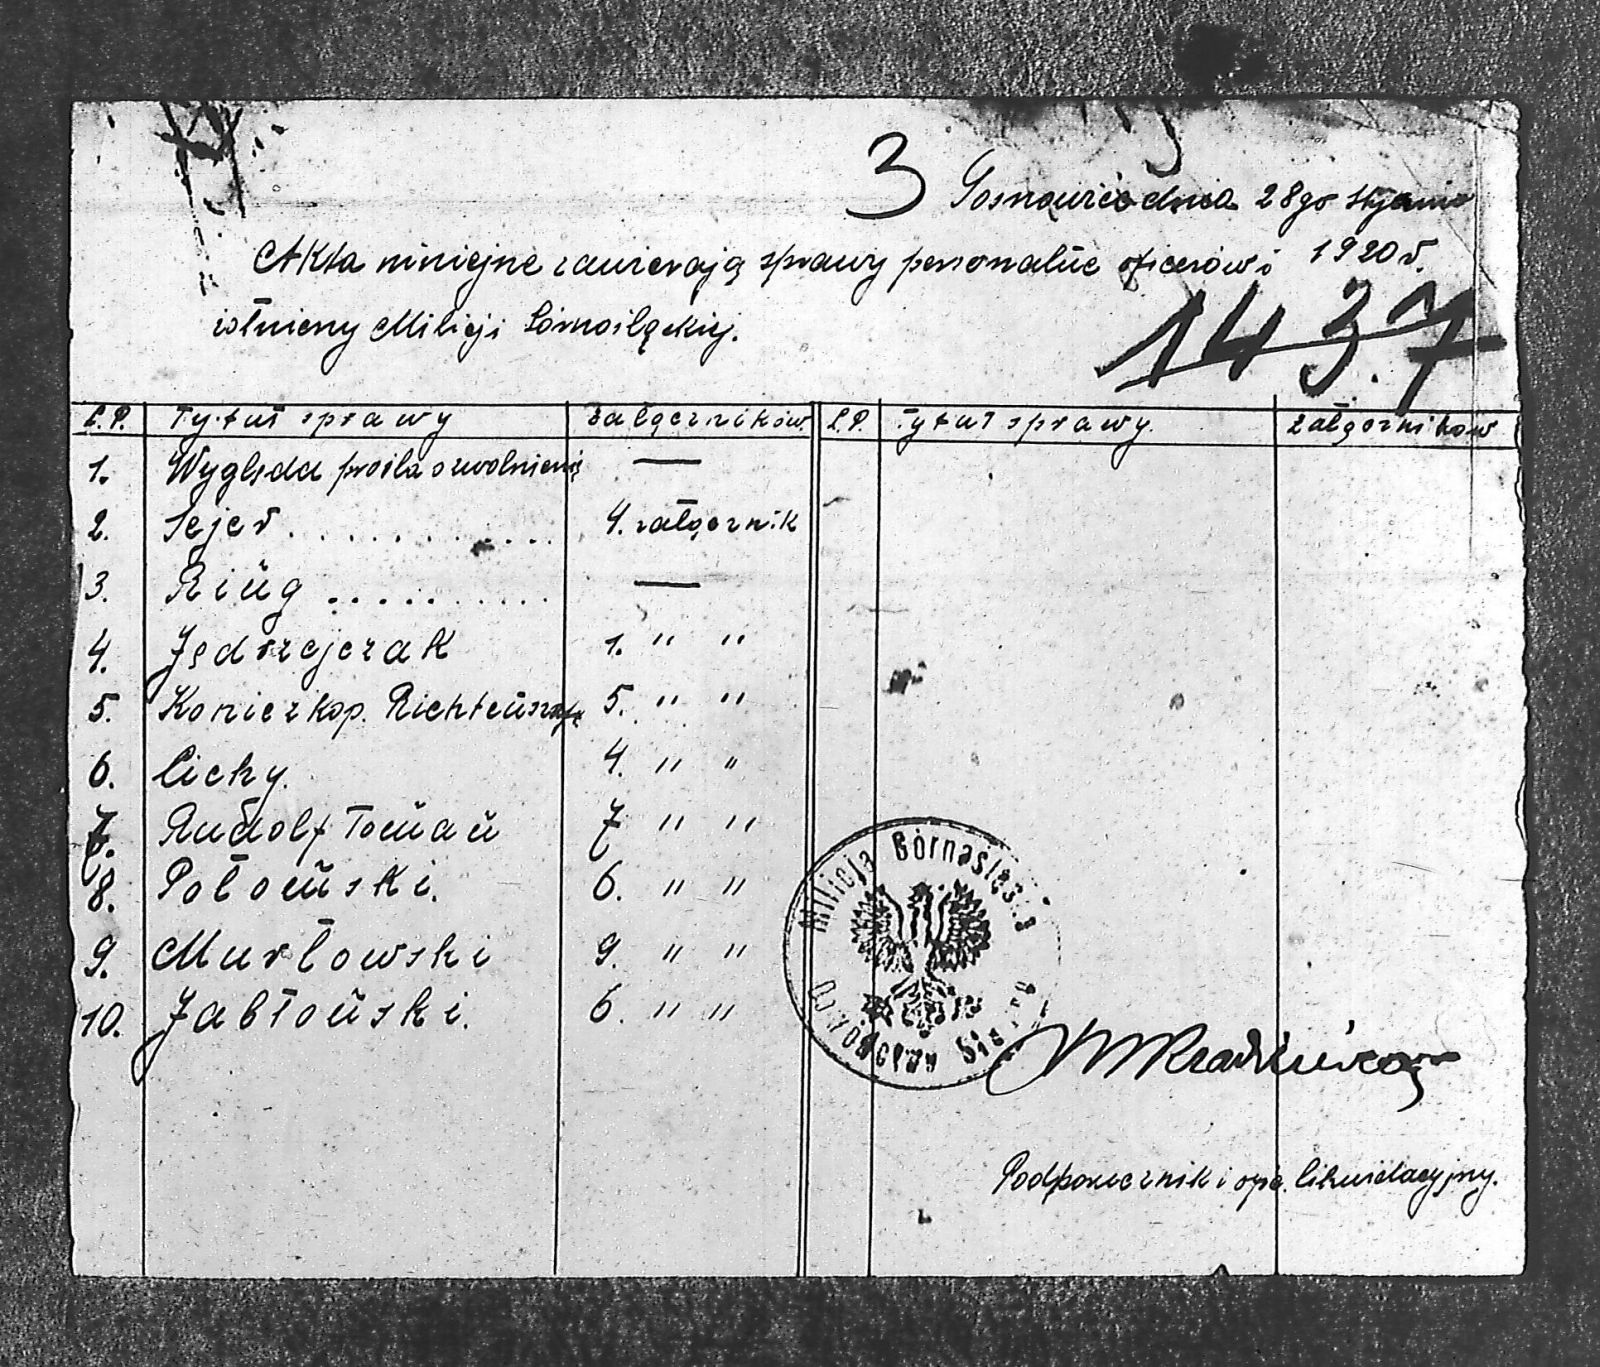 3 Sosnowice dnia 28go stycznia
1920 r.
Akta niniejsze zawierają sprawy personalne oficerów i
żołnierzy Milicji Górnośląskiej.
143.7
L.P. Tytuł sprawy załączników L.P. Tytuł sprawy. załączników
1. Wyględa prośba o zwolnienie —
2. Sejer . . . . . . . . . . . 4. załącznik
3. Riüg . . . . . . . . . . —
4. Jędrzejczak 1. " "
5. Koniecz kop. 5. " "
6. Cichy. 4. " "
7. Rudolf 7 " "
8. 6. " "
9. Murłowski 9. " "
10. Jabłoński. 6. " "
Milicja Górnośląska
Dowództwo
Podporucznik i ofic. likwidacyjny.